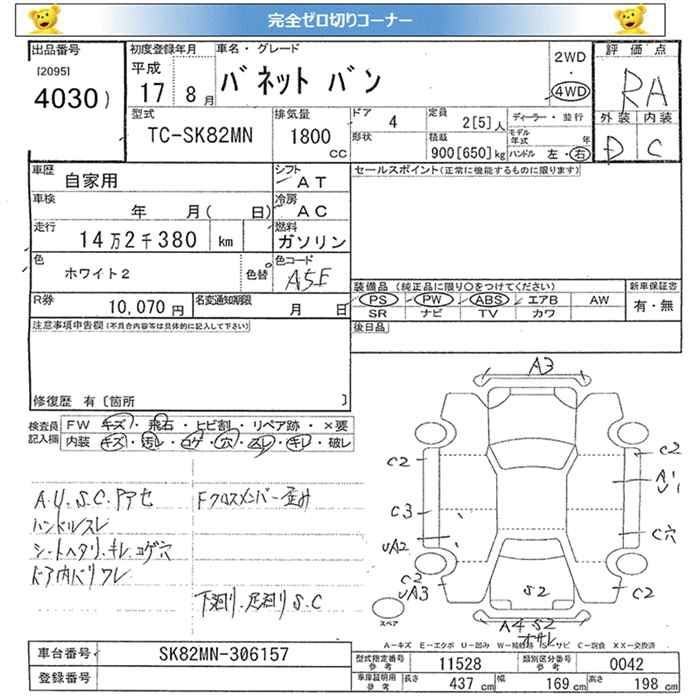 完全ゼロ切りコーナー
出品番号
[2095]
4030)
初度登録年月
平成
17 8月
車名・グレード
バネット バン
2WD
・
4WD
評価点
RA
外装 内装
D C
型式
TC-SK82MN
排気量
1800
CC
ドア 4
形状
定員 2[5]人
積載
900[650]kg
ディーラー・並行
モデル年式 年
ハンドル 左・右
車歴
自家用
シフト
AT
車検
年 月( 日)
冷房
AC
走行
14万2千380 km
燃料
ガソリン
色
ホワイト2
色替
色コード
A5E
R券
10,070円
名変通知期限
月 日
セールスポイント(正常に機能するものに限ります)
装備品 (純正品に限り○をつけてください)
PS ・ PW ・ ABS ・ エアB AW
SR ナビ TV カワ
新車保証書
有・無
後日品
注意事項申告欄(不具合内容等は具体的に記入して下さい)
修復歴 有 [箇所 ]
検査員記入欄
FW キズ・飛石・ヒビ割・リペア跡・×要
内装 キズ・汚レ・コゲ・穴・スレ・キレ・破レ
A.U.S.C.アアセ
ハンドルスレ
シートヘタリ.キレ.コゲ穴
ドア内バリワレ
Fクロスメンバー歪み
下廻リ.足廻リ S.C
A3
C2
C2
A1
U1
C3
C穴
UA2
C2
UA3
S2
C2
A4 S2
オサレ
スペア
A-キズ E-エクボ U-凹み W-補修跡 S-サビ C-腐食 XX-交換済
車台番号
SK82MN-306157
登録番号
型式指定番号
参考
11528
類別区分番号
参考
0042
車庫証明用
参考
長さ 437 cm
幅 169 cm
高さ 198 cm